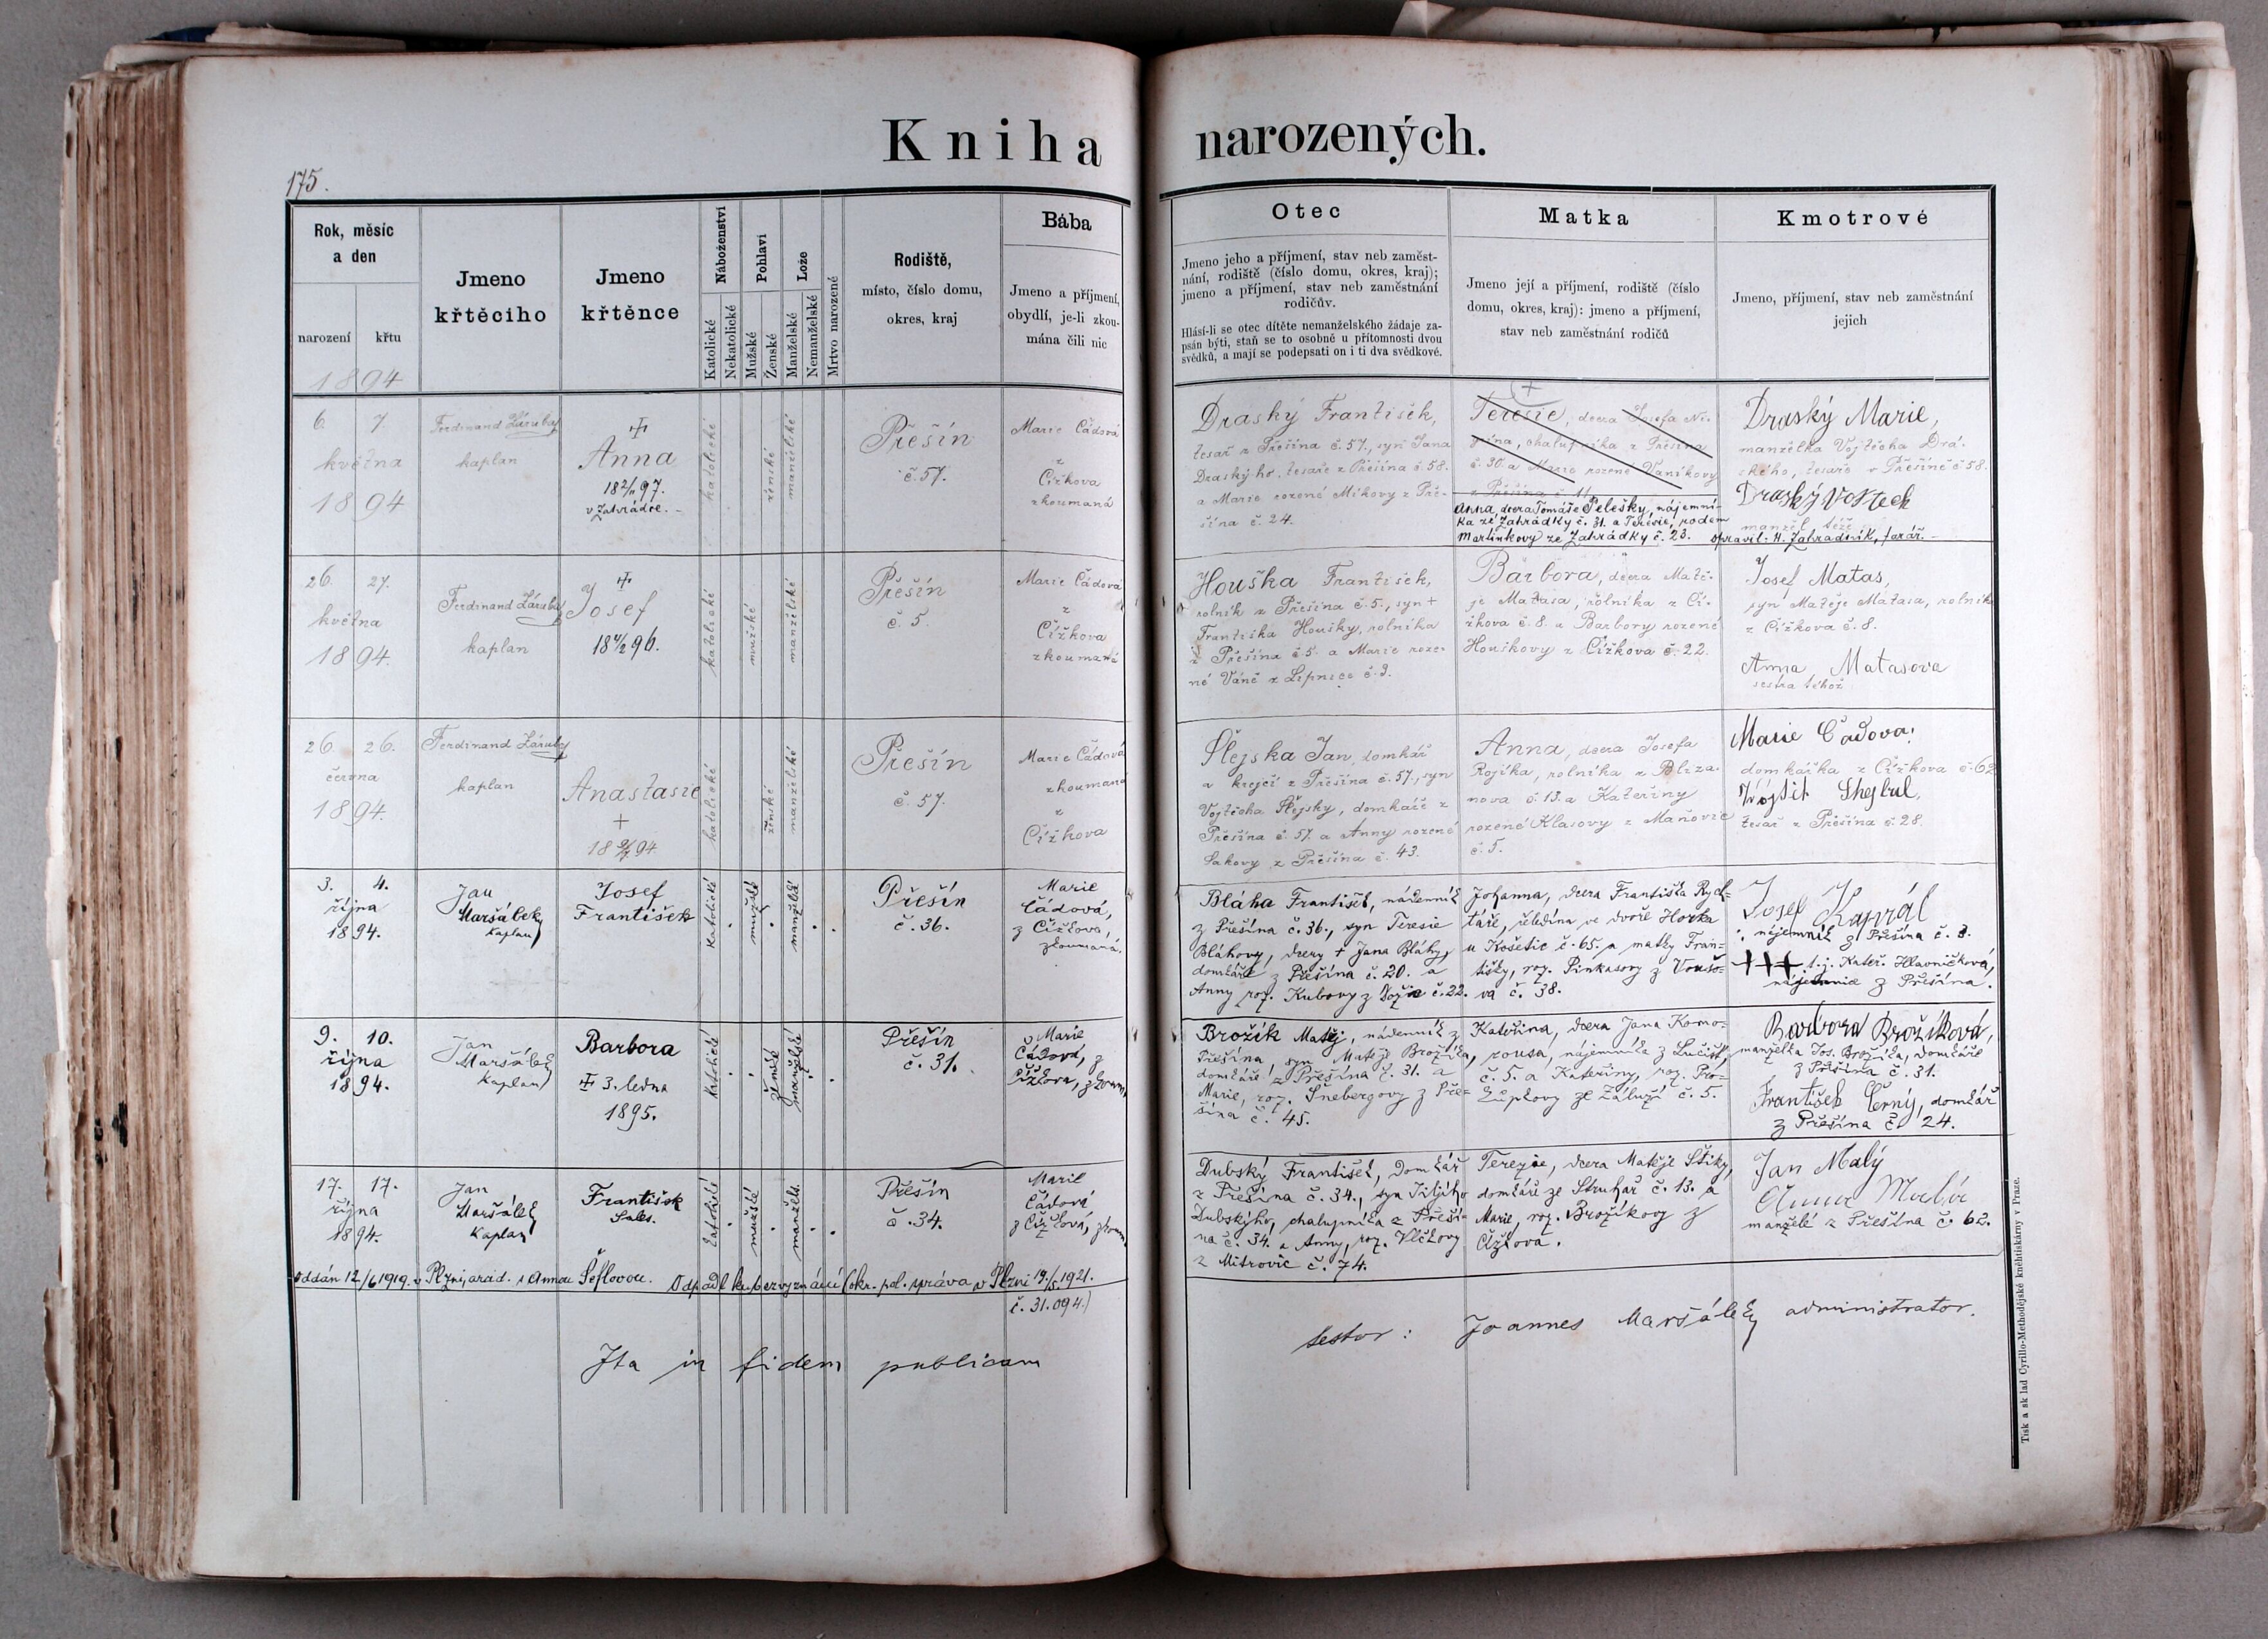 Kniha narozených.
175.
Rok, měsíc
a den
narození
křtu
1894
Jmeno
křtěciho
Jmeno
křtěnce
Náboženství
Katolické
Nekatolické
Pohlaví
Mužské
Ženské
Lože
Manželské
Nemanželské
Mrtvo narozené
Rodiště,
místo, číslo domu,
okres, kraj
Bába
Jmeno a příjmení,
obydlí, je-li zkou-
mána čili nic
Otec
Jmeno jeho a příjmení, stav neb zaměst-
nání, rodiště (číslo domu, okres, kraj);
jmeno a příjmení, stav neb zaměstnání
rodičův.
Hlásí-li se otec dítěte nemanželského žádaje za-
psán býti, staň se to osobně u přítomnosti dvou
svědků, a mají se podepsati on i ti dva svědkové.
Matka
Jmeno její a příjmení, rodiště (číslo
domu, okres, kraj): jmeno a příjmení,
stav neb zaměstnání rodičů
Kmotrové
Jmeno, příjmení, stav neb zaměstnání
jejich
6. 7.
května
1894
Ferdinand Záruba
kaplan
Anna
v Zahrádce.
katolické
ženské
manželské
Přešín
č. 57.
Marie Čádová
z
Čížkova
zkoumaná
Draský František,
tesař z Přešína č. 57., syn Jana
Draského, tesaře z Přešína č. 58.
a Marie rozené Mikovy z Pře-
šína č. 24.
Teresie, dcera Josefa
chalupníka z Přešína
č. 30. a Marie rozené Vaníkovy
z Přešína č. 11.
Anna, dcera Tomáše Pelešky, nájemní-
ka ze Zahrádky č. 31. a Terésie, rodem
Martínkovy ze Zahrádky č. 23.
Draský Marie,
manželka Vojtěcha Dra-
ského, tesaře v Přešíně č 58.
Draský
manžel též
opravil: H. Zahradník, farář.
26. 27.
května
1894.
Ferdinand Záruba
kaplan
Josef
katolické
mužské
manželské
Přešín
č. 5.
Marie Čádová
z
Čížkova
zkoumaná
Houška František,
rolník z Přešína č. 5., syn +
Františka Houšky, rolníka
z Přešína č 5. a Marie roze-
né Váně z Lipnice č. 2.
Barbora, dcera Matě-
je Matasa, rolníka z Čí-
žkova č. 8. a Barbory rozené
Houškovy z Čížkova č. 22.
Josef Matas,
syn Matěje Matasa, rolník
z Čížkova č. 8.
Anna Matasova
sestra téhož
26. 26.
června
1894.
Ferdinand Záruba
kaplan
Anastasie
+
katolické
ženské
manželské
Přešín
č. 57.
Marie Čádová
zkoumaná
z
Čížkova
Šlejska Jan, domkář
a krejčí z Přešína č. 57., syn
Vojtěcha Šlejsky, domkáře z
Přešína č. 57. a Anny rozené
z Přešína č. 43.
Anna, dcera Josefa
Rojíka, rolníka z Bliza-
nova č. 13. a Kateřiny
rozené Klasovy z Maňovic
č. 5.
Marie Čadova.
domkářka z Čížkova č. 62
tesař z Přešína č. 28.
3. 4.
října
1894.
Jan
Maršálek
kaplan
Josef
František
katolické
mužské
manželské
Přešín
č. 36.
Marie
Čádová,
z Čížkova,
zkoumaná.
Bláha František, nádenník
z Přešína č. 36., syn Teresie
Bláhovy, dcery + Jana Bláhy,
domkáře z Přešína č. 20. a
Anny roz. Kubovy z č. 22.
Johanna, dcera Františka Rych-
táře, čeledína ve dvoře Horka
u Košetic č. 65. a matky Fran-
tišky, roz. Pinkasovy z Voušo-
va č. 38.
Josef Kaprál
nájemník z Přešína č. 8.
+++ t. j. Kateř. Hlavničková,
nájemnice z Přešína.
9. 10.
října
1894.
Jan
Maršálek
kaplan
Barbora
3. ledna
1895.
katolické
ženské
manželské
Přešín
č. 31.
Marie
Čádová, z
Čížkova, zkoum.
Brožík Matěj, nádenník z
Přešína, syn Matěje Brožíka,
domkáře z Přešína č. 31. a
Marie, roz. Šnebergovy z Pře-
šína č. 45.
Kateřina, dcera Jana Komo-
rousa, nájemníka z Lučiště,
č. 5. a Kateřiny, roz. Pro-
kupkovy ze Záluží č. 5.
Barbora Brožíková,
manželka Jos. Brožíka, domkáře
z Přešína č. 31.
František Černý, domkář
z Přešína č. 24.
17. 17.
října
1894.
Jan
Maršálek
kaplan
František
Sales.
katolické
mužské
manžels.
Přešín
č. 34.
Marie
Čádová
z Čížkova, zkoum.
Dubský František, domkář
z Přešína č. 34., syn Jiljího
Dubského, chalupníka z Přeší-
na č. 34. a Anny, roz. Vlčkovy
z Mítrovic č. 74.
Terezie, dcera Matěje Štiky,
domkáře ze Struhař č. 13. a
Marie, roz. Brožíkovy z
Čížkova.
Jan Malý
Anna Malá
manželé z Přešína č. 62.
Oddán 12/6 1919. v Plzni, s Annou Šeflovou. Odpadl ku bezvyznání (okr. pol. správa v Plzni 19./5. 1921.
č. 31.094.)
Ita in fidem publicam testor: Joannes Maršálek administrator.
Tisk a sklad Cyrillo-Methodějské kněhtiskárny v Praze.